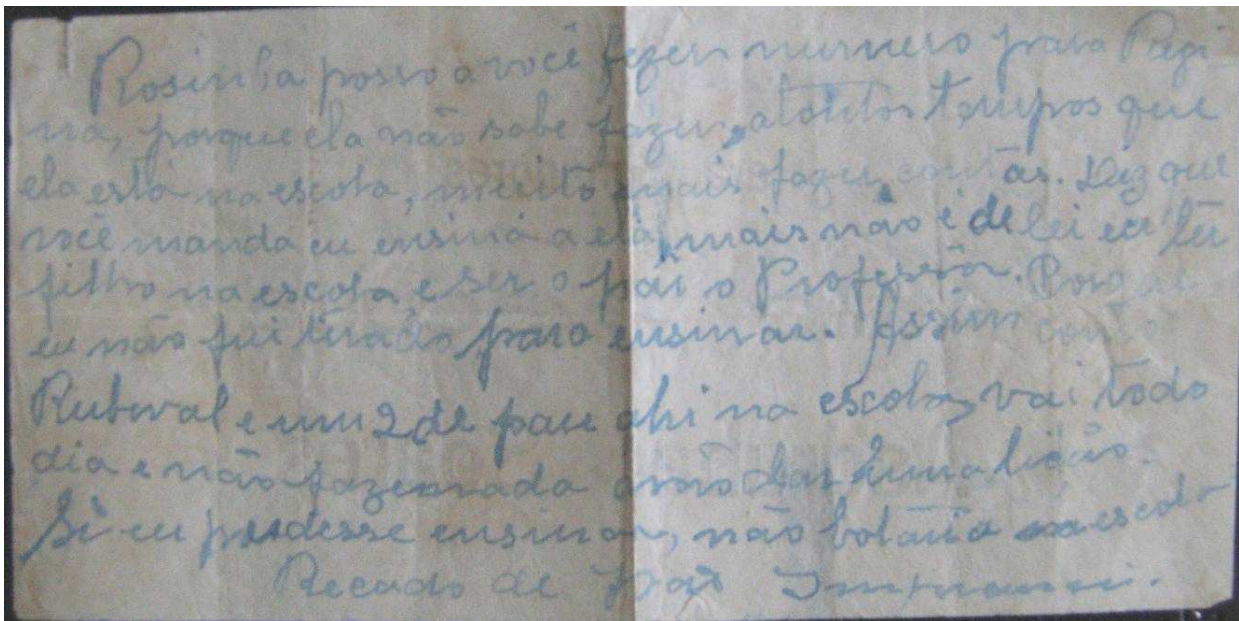 Rosinha posso a você fazer numero para Regi-
na, porque ela não sabe fazer, a tantos tempos que
ela está na escola, muito mais fazer contas. Diz que
você manda eu ensina a ela, mais não é de lei eu ter
filho na escola e ser o pai o Professor. Porque
eu não fui tirado para ensinar. Assim como
Rubeval e um 2 de pau ahi na escola, vai todo
dia e não faz nada a não dar huma lição.
Si eu pudesse ensinar, não botava na escola
Recado de